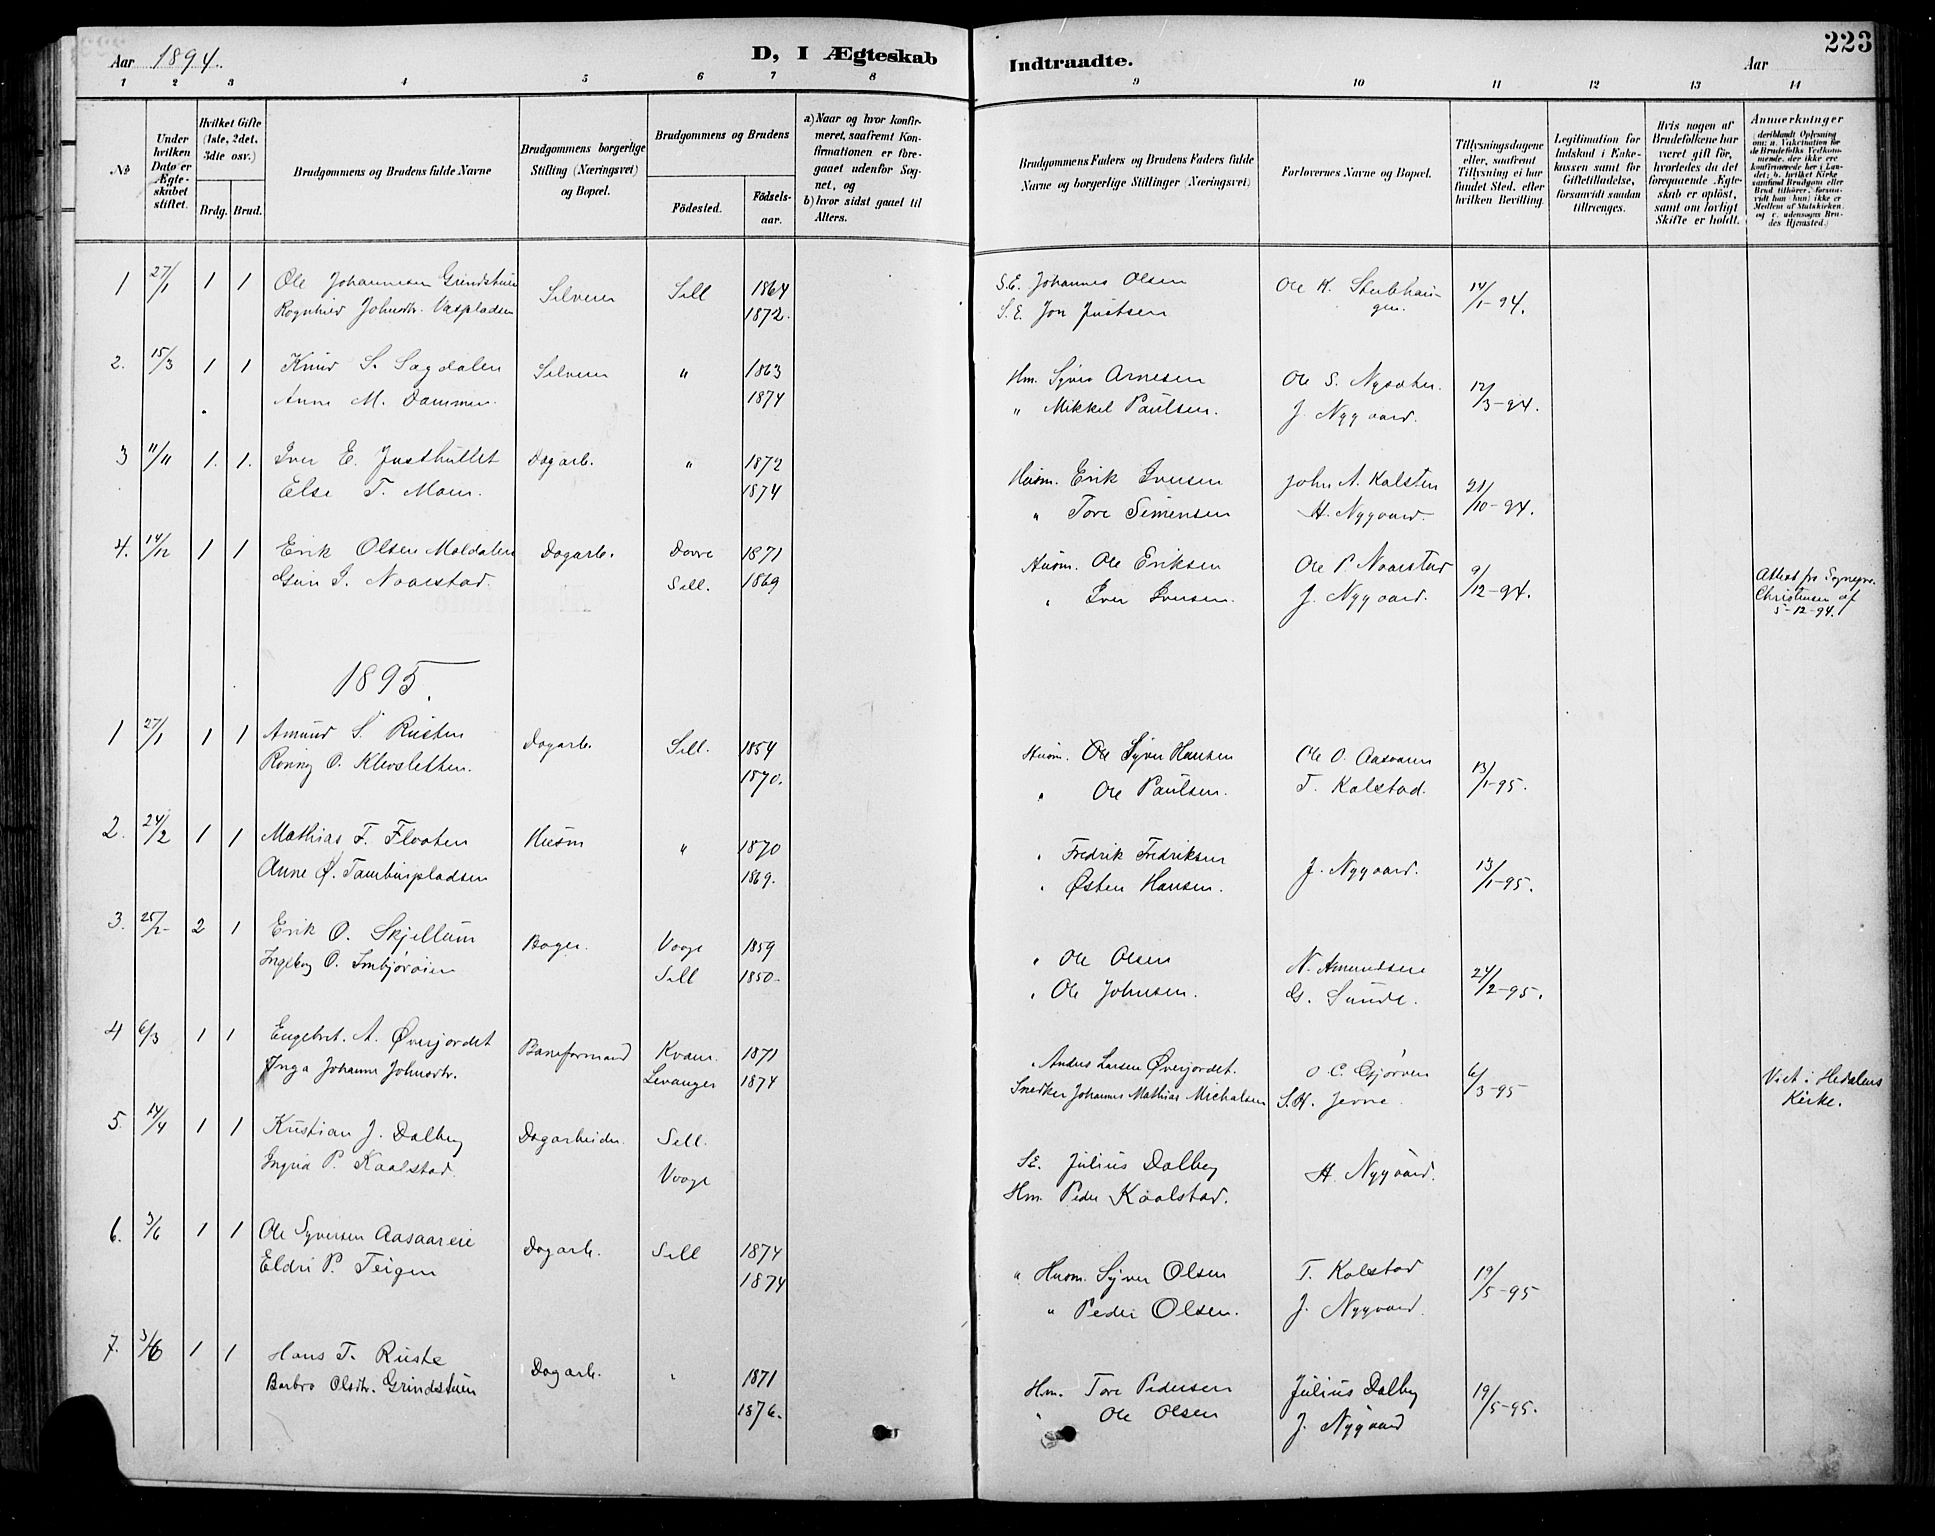 Aar 1894. D, I Ægteskab Indtraadte. Aar 223
1 2 3 4 5 6 7 8 9 10 11 12 13 14
№
Under hvilken Dato er Ægteskabet stiftet.
Hvilket Gifte (1ste, 2det, 3die osv.)
Brdg. Brud.
Brudgommens og Brudens fulde Navne
Brudgommens borgerlige Stilling (Næringsvei) og Bopæl.
Brudgommens og Brudens
Fødested. Fødselsaar.
a) Naar og hvor konfirmeret, saafremt Konfirmationen er foregaaet udenfor Sognet, og
b) hvor sidst gaaet til Alters.
Brudgommens Faders og Brudens Faders fulde Navne og borgerlige Stillinger (Næringsvei)
Forlovernes Navne og Bopæl.
Tillysningsdagene eller, saafremt Tillysning ei har fundet Sted, efter hvilken Bevilling.
Legitimation for Indskud i Enkekassen samt for Giftetilladelse, forsaavidt saadan tiltrænges.
Hvis nogen af Brudefolkene har været gift før, hvorledes da det foregaaende Ægteskab er opløst, samt om lovligt Skifte er holdt.
Anmerkninger
1 27/1 1 1 Ole Johannesen Grindstuen Selveier Sell 1864 S.E. Johannes Olsen Ole K. Stubhau- 14/1-94.
Rognhild Johnsdtr. Vaspladsen 1872. S.E. Jon Justsen gen.
2. 15/3 1 1 Knud S. Sagdalen Selveier " 1863 Hm. Syver Arnesen Ole S. 12/3-94.
Anne M. Dammen. 1874 " Mikkel Paulsen. J. Nygaard.
3 11/11 1. 1. Iver E. Justhullet Dagarb. " 1872 Husm. Erik Iversen John A. Kalsten 21/10-94.
Else T. Moen. 1874 " Tore Simensen H. Nygaard.
4. 14/12 1 1 Erik Olsen Moldalen Dagarb. Dovre 1871 Husm. Ole Eriksen Ole P Naarstad 9/12-94. Attest fra Sognepr.
Guri I. Naarstad. Sell. 1869 " Iver Iversen. J. Nygaard. Christensen af
5-12-94.
1895.
1 27/1 1 1 Amund S. Rusten Dagarb. Sell. 1854 Husm. Ole Syver Hansen Ole O. Aasaaren 13/1-95.
Rønnog O. Klevsletten. 1870. " Ole Paulsen. T. Kolstad.
2. 24/2 1 1 Mathias F. Flaaten Husm " 1870 " Fredrik Fredriksen J. Nygaard. 13/1-95.
Anne Ø. Tamburpladsen 1869. " Østen Hansen.
3. 25/2 2 1 Erik O. Skjellum Bager. Vaage 1859 " Ole Olsen N. Amundsen 24/2-95.
Ingebog O. Imbjørøien Sell 1850. " Ole Johnsen. G. Sunde.
4 6/3 1 1 Engebret. A. Øverjordet Baneformand Kvam. 1871 " Anders Larsen Øverjordet. O. C. Gjørven 6/3-95 Viet i Hedalens
Inga Johanne Johnsdtr. Levanger 1874 Snedker Johannes Mathias Michalsen S.H. Jevne. Kirke.
5. 14/4 1 1 Kristian J. Dalbey Dagarbeider. Sell. SE. Julius Dalbey H. Nygaard.
Ingrid P. Kaalstad. Vaage Hm. Peder Kaalstad.
6. 3/6 1 1 Ole Syversen Aasaareie Dagarb. Sell 1874 " Husm. Syver Olsen T. Kolstad 19/5-95
Eldri P. Teigen 1874 " Peder Olsen. J. Nygaard.
7. 3/6 1 1 Hans T. Ruste Dagarb. " 1871 Hm. Tore Pedersen Julius Dalbey 19/5-95.
Barbro Olsdtr. Grindstuen 1876. " Ole Olsen J. Nygaard